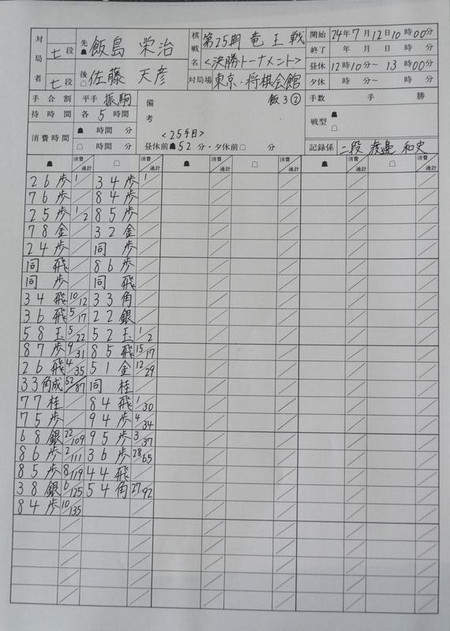 対局者 七段 先 飯島 栄治 棋戦名 第25期 竜王戦 <決勝トーナメント> 開始 24年7月12日10時00分
終了 年 月 日 時 分
七段 後 佐藤 天彦 対局場 東京・将棋会館 昼休 12時10分〜13時00分
夕休 時 分〜 時 分
手合割 平手 振駒 備考 飯3② 手数 手 勝
持時間 各5時間 戦型
消費時間 時間 分 <25手目>
時間 分 昼休前☗52分・夕休前☖ 分 記録係 二段 渡邊 和史
☗ 消費 通計 ☖ 消費 通計 ☗ 消費 通計 ☖ 消費 通計 ☗ 消費 通計 ☖ 消費 通計
26歩 1 34歩 1
76歩 84歩
25歩 1/2 85歩
78金 32金
24歩 同歩
同飛 86歩
同歩 同飛
34飛 10/12 33角
36飛 5/17 22銀
58玉 5/22 52玉 1/2
87歩 9/31 85飛 15/17
26飛 4/35 51金 12/29
33角成 52/87 同桂
77桂 84飛 1/30
75歩 94歩 4/34
68銀 22/109 95歩 3/37
86歩 2/111 36歩 28/65
85歩 8/119 44飛
38銀 6/125 54角 27/92
84歩 10/135